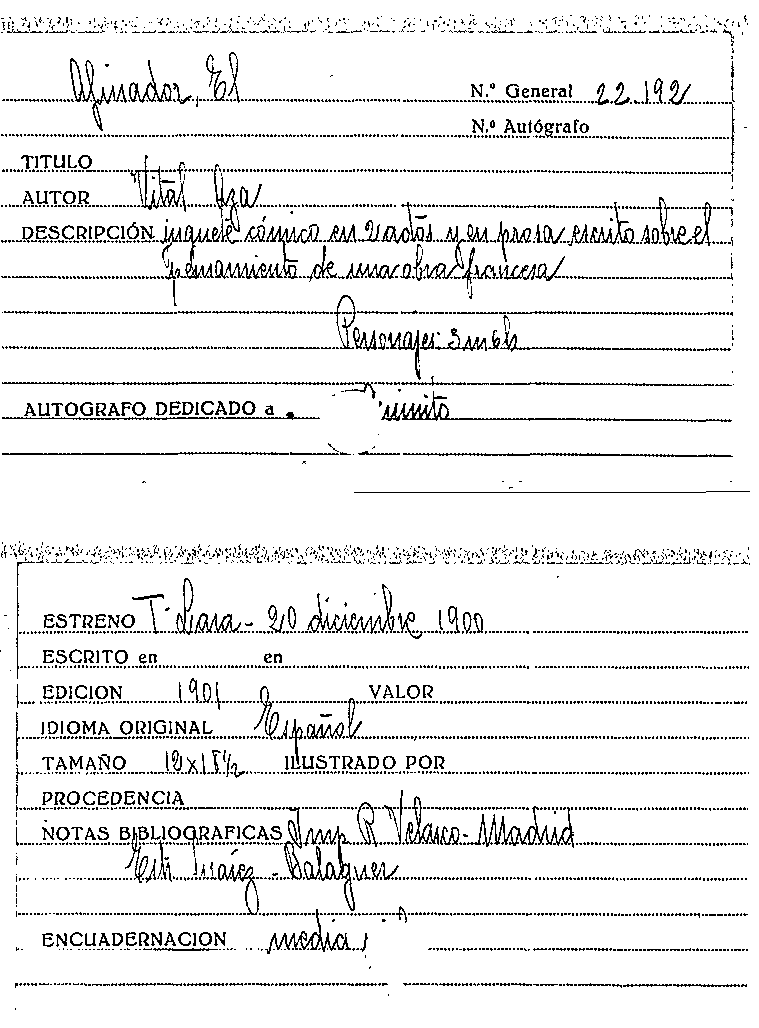 Afinador, El
N.º General 22.192
N.º Autógrafo
TITULO
AUTOR Vital Aza
DESCRIPCIÓN juguete cómico en 2 actos y en prosa escrito sobre el
pensamiento de una obra francesa
Personajes: 3 m 6 h
AUTOGRAFO DEDICADO a
ESTRENO T. Lara - 20 diciembre 1900
ESCRITO en en
EDICION 1901 VALOR
IDIOMA ORIGINAL Español
TAMAÑO 12 x 18 1/2 ILUSTRADO POR
PROCEDENCIA
NOTAS BIBLIOGRAFICAS Imp R Velasco - Madrid
Suárez - Balaguer
ENCUADERNACION media